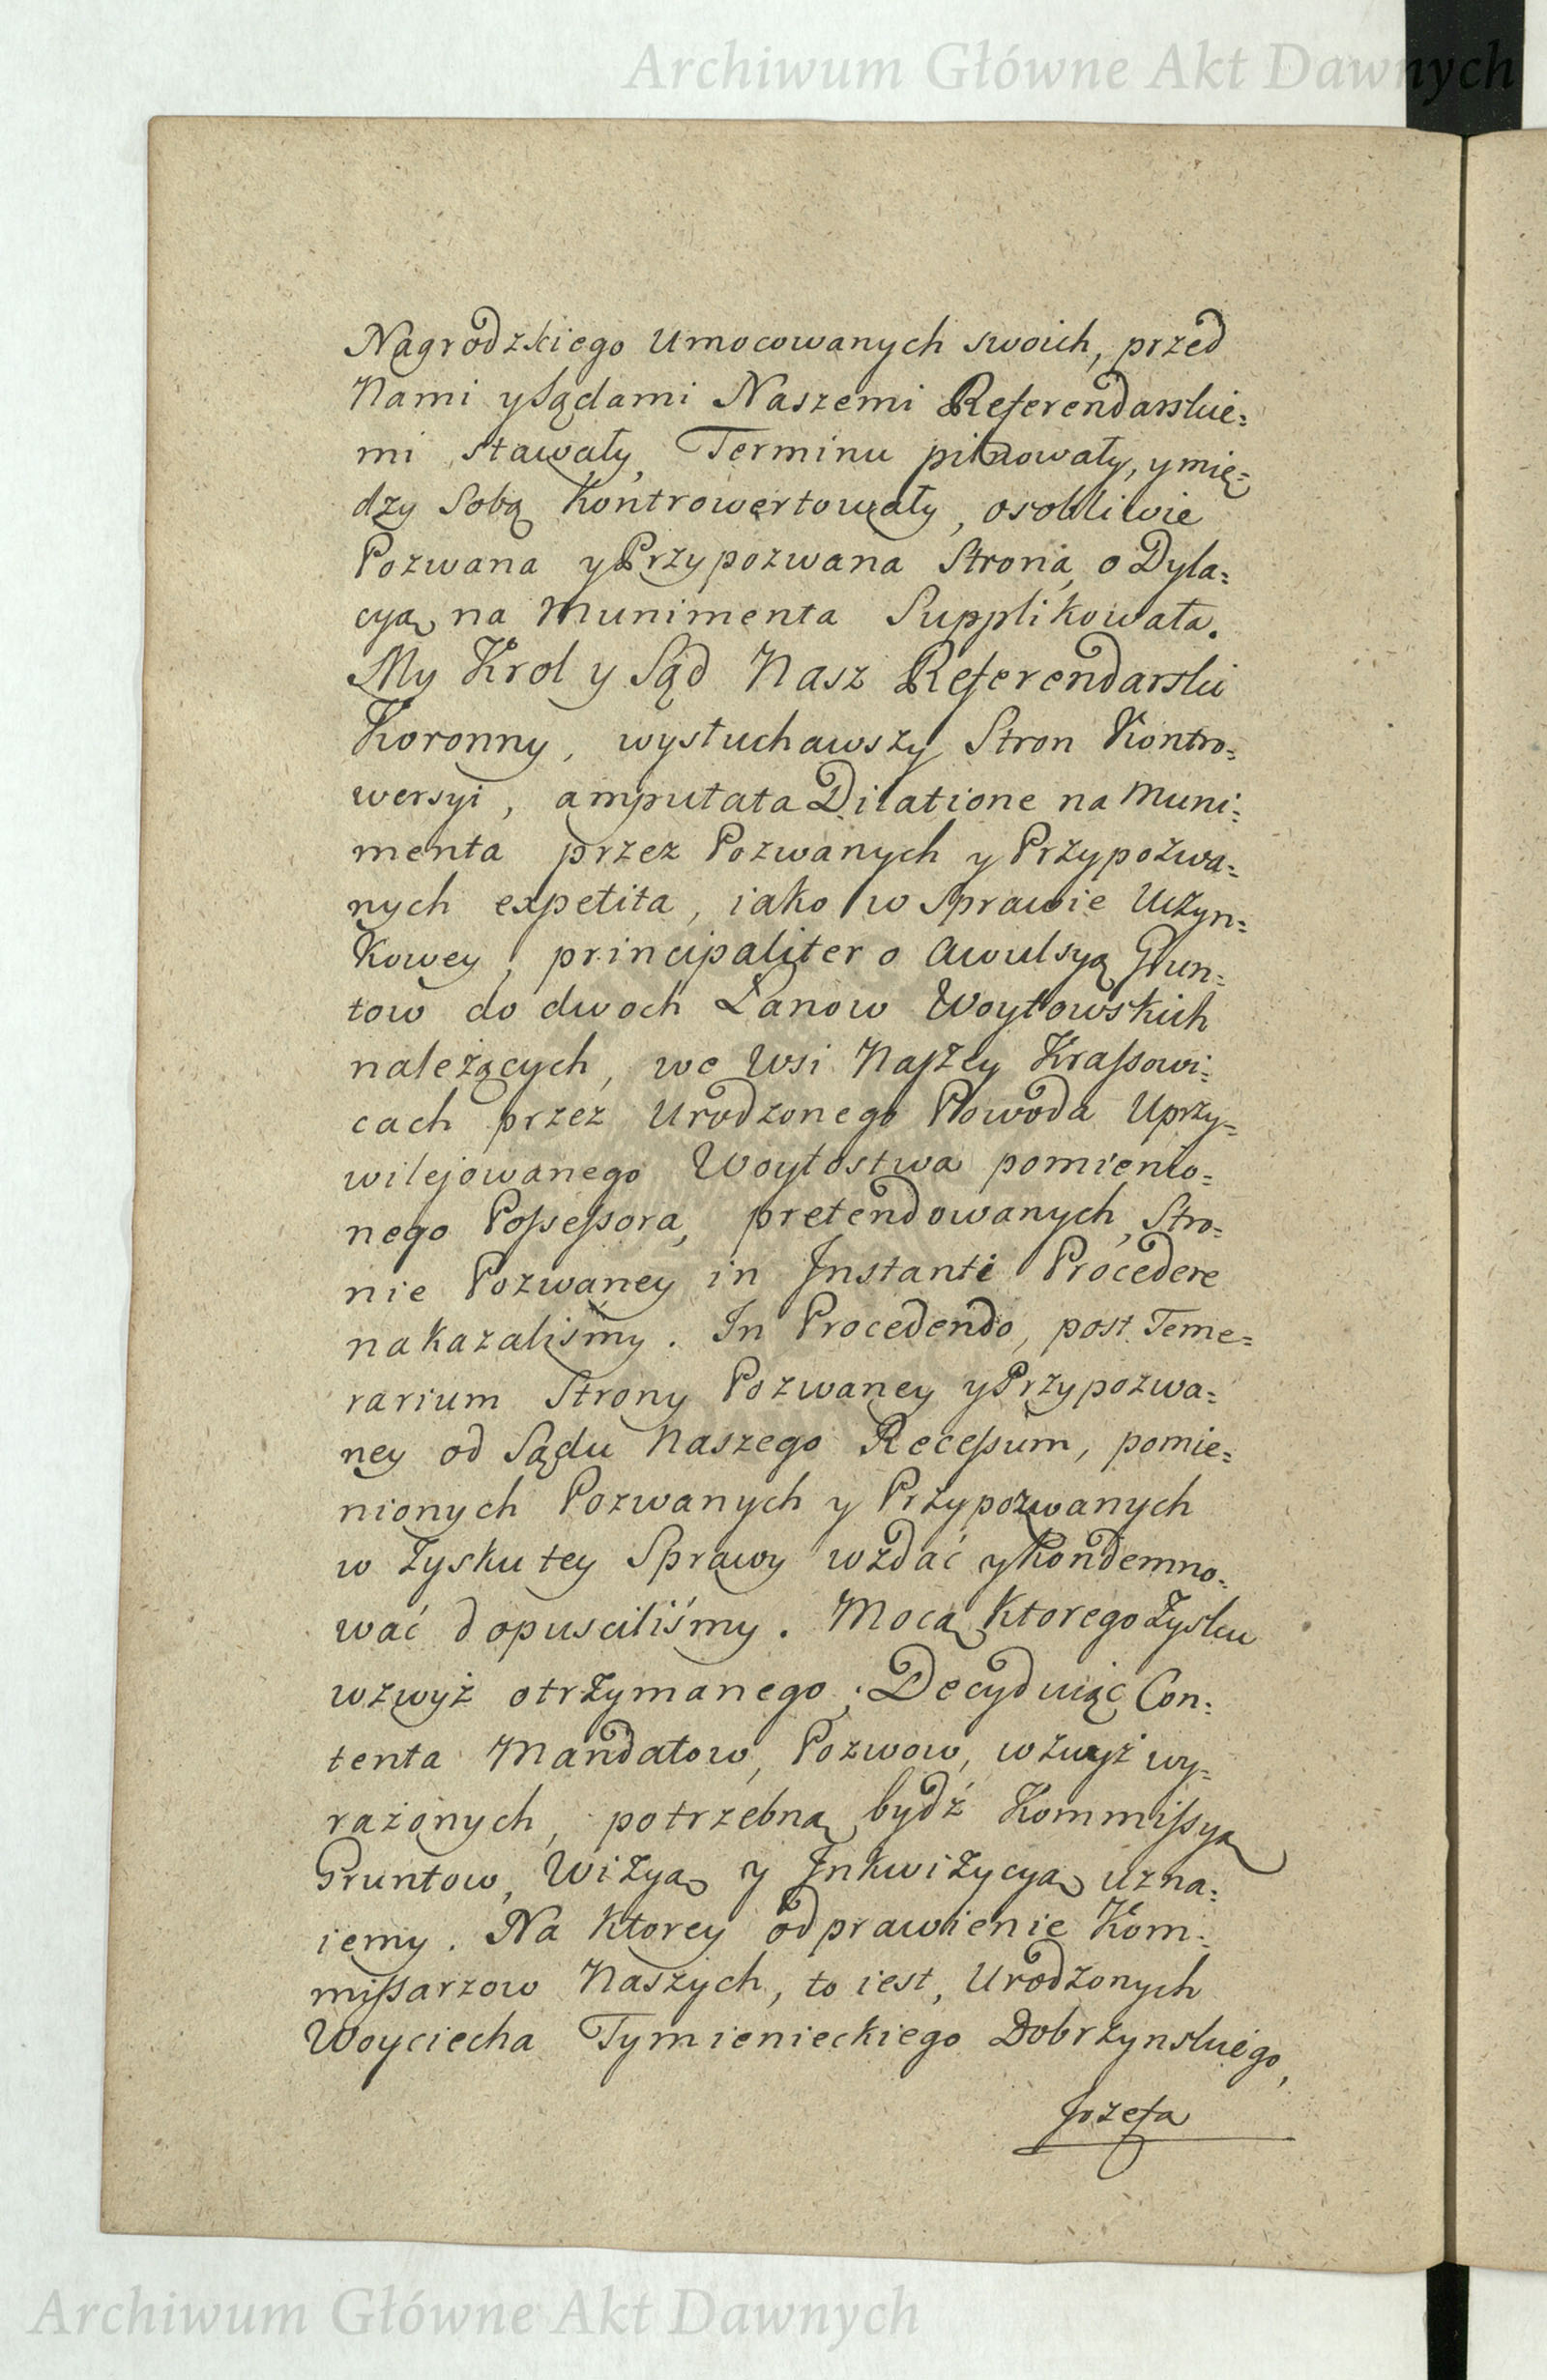 Archiwum Główne Akt Dawnych
Nagrodzkiego Umocowanych swoich, przed
Nami y Sądami Naszemi Referendarskie=
mi stawały, Terminu pilnowały, y mię=
dzy Sobą Kontrowertowały, osobliwie
Pozwana y Przypozwana Strona, o Dyla=
cyą na Munimenta Supplikowała.
My Krol y Sąd Nasz Referendarski
Koronny, wysłuchawszy Stron Kontro=
wersyi, amputata Dilatione na Muni=
menta przez Pozwanych y Przypozwa=
nych expetita, iako w Sprawie Uczyn=
kowey, principaliter o awulsyą Grun=
tow do dwoch Łanow Woytowskich
należących, we Wsi Naszey Krassowi=
cach przez Urodzonego Powoda Uprzy=
wilejowanego Woytostwa pomienio=
nego Possessora, pretendowanych, Stro=
nie Pozwaney in Instanti Procedere
nakazaliśmy. In Procedendo, post Teme=
rarium Strony Pozwaney y Przypozwa=
ney od Sądu Naszego Recessum, pomie=
nionych Pozwanych y Przypozwanych
w Zysku tey Sprawy wzdać y Kondemno=
wać dopusciliśmy. Mocą Ktorego Zysku
wzwyż otrzymanego, Decyduiąc Con=
tenta Mandatow, Pozwow, wzwyż wy=
rażonych, potrzebną bydź Kommissyą
Gruntow, Wizyą y Inkwizycyą uzna=
iemy. Na Ktorey odprawienie Kom=
missarzow Naszych, to iest, Urodzonych
Woyciecha Tymienieckiego Dobrzynskiego,
Jozefa
Archiwum Główne Akt Dawnych